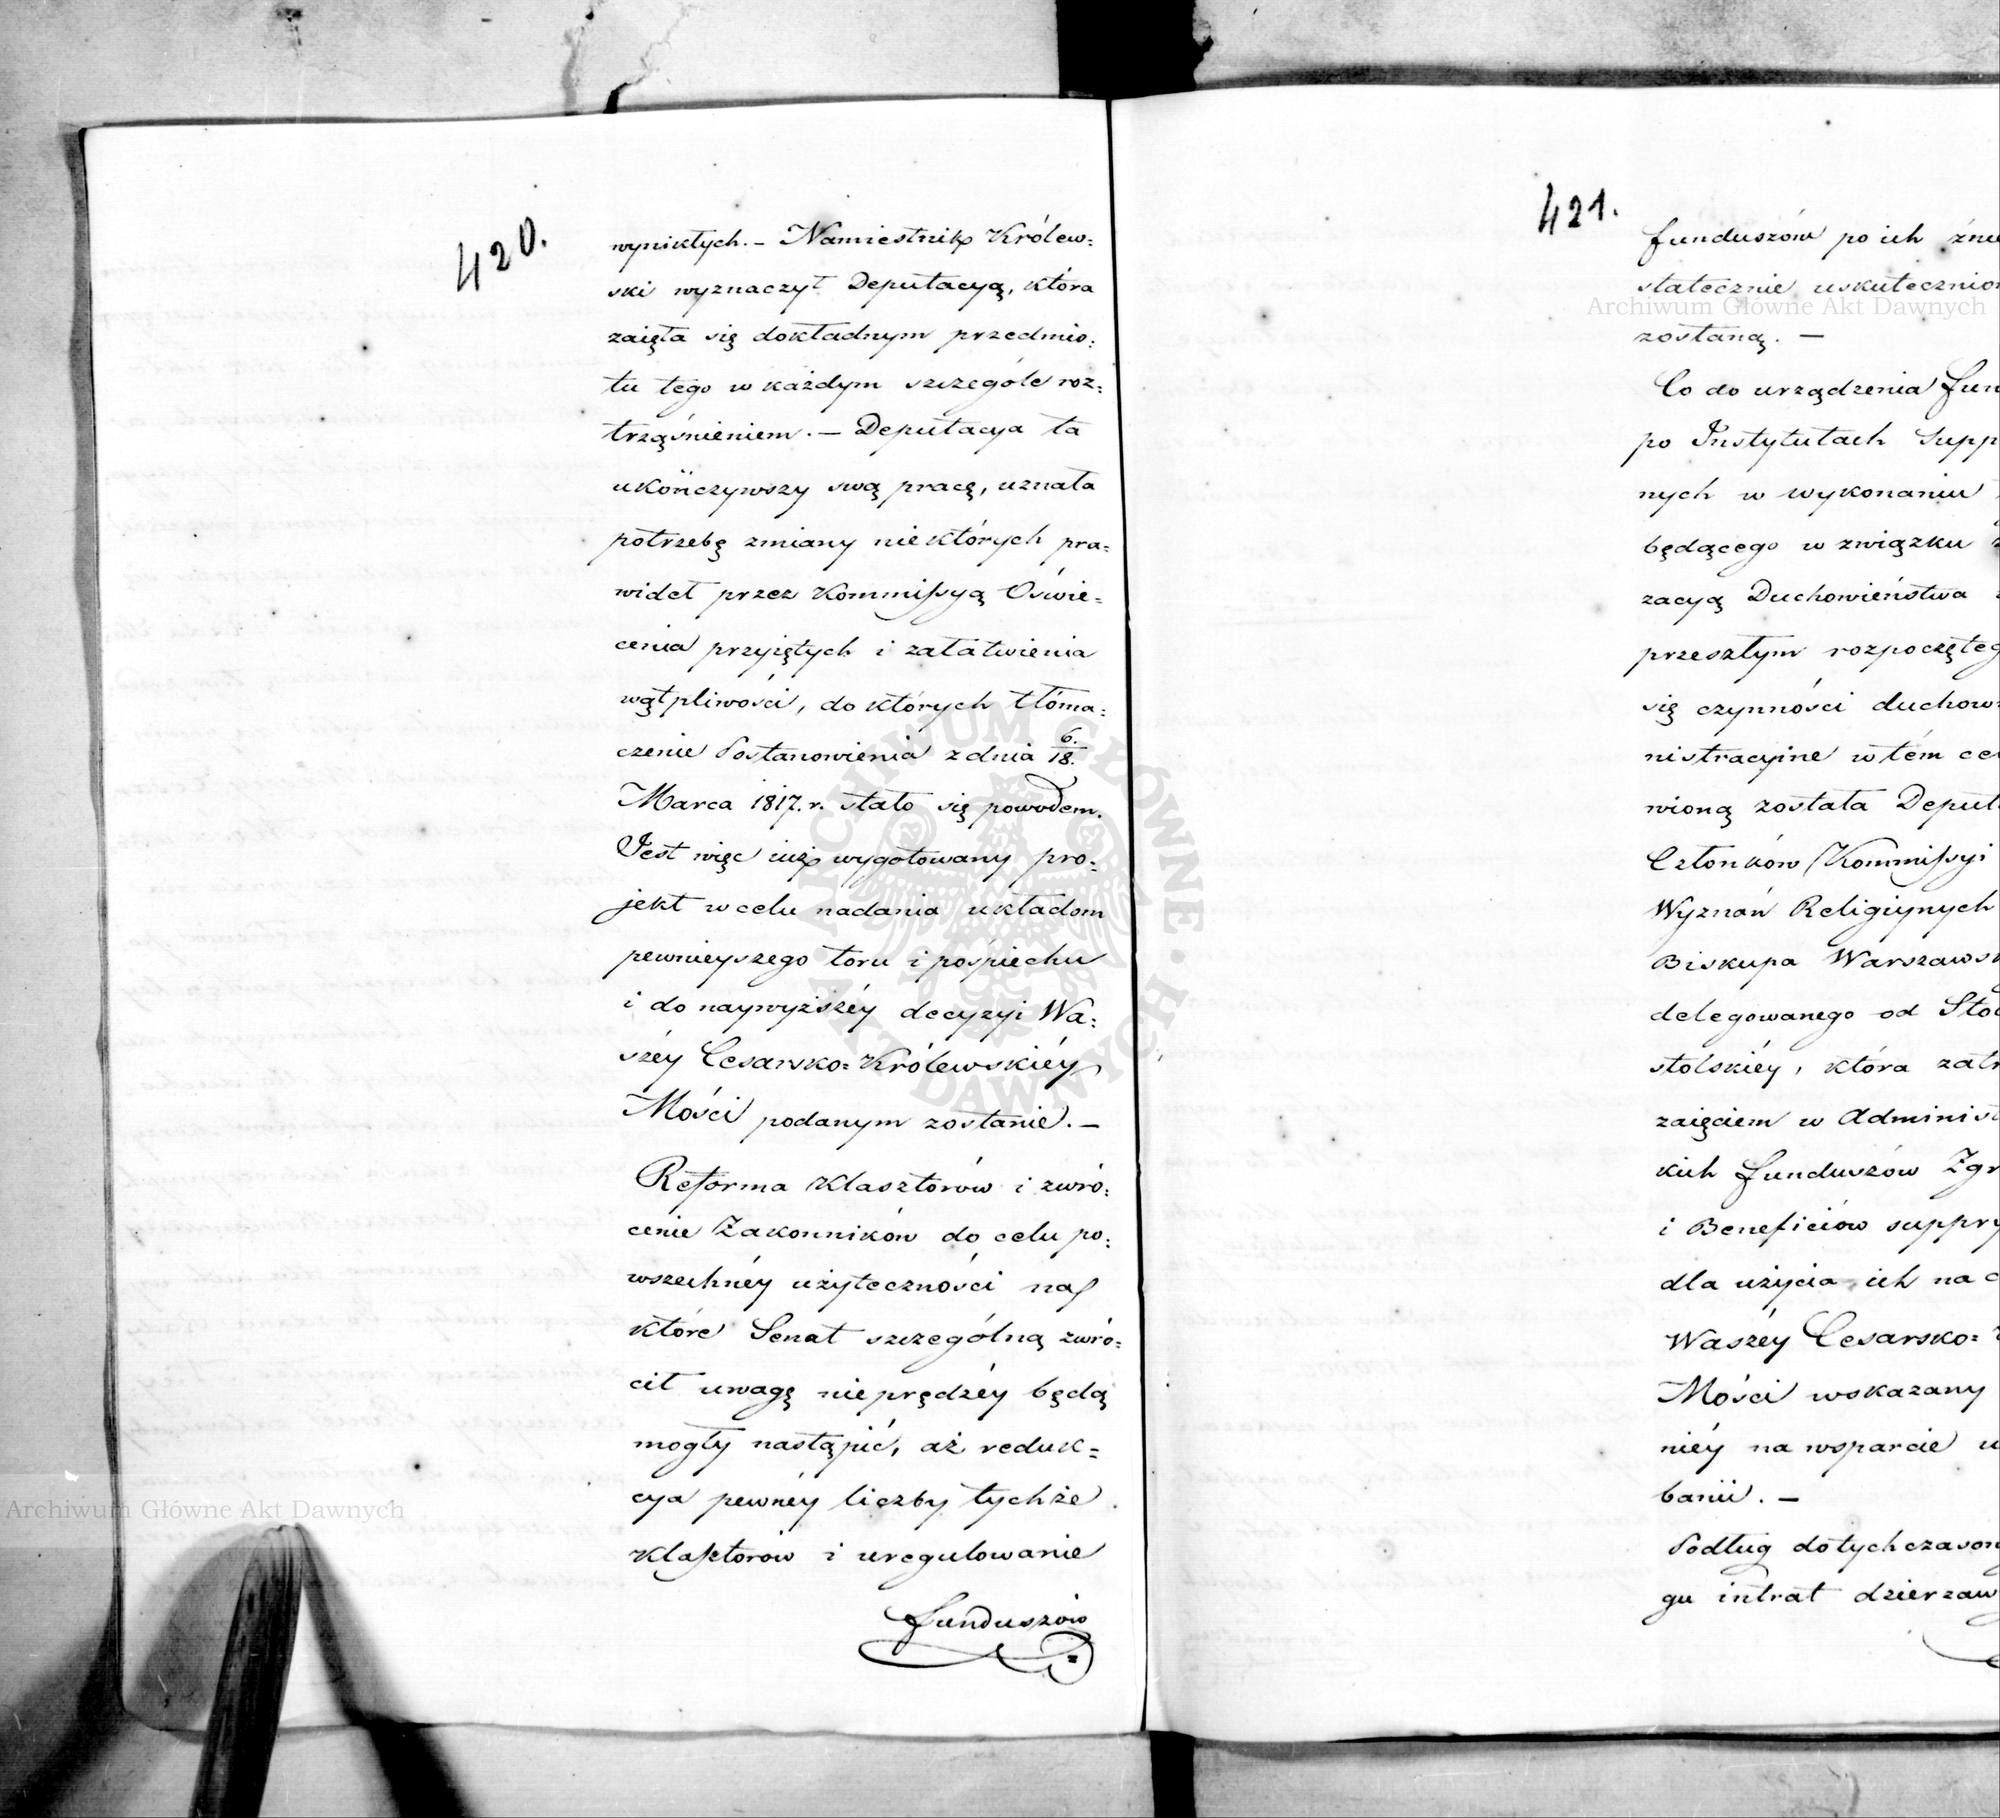 420.
wynikłych. — Namiestnik Królew=
ski wyznaczył Deputacyą, która
zaięła się dokładnym przedmio=
tu tego w każdym szczególe roz=
trząśnieniem. — Deputacya ta
ukończywszy swą pracę, uznała
potrzebę zmiany niektórych pra=
wideł przez Kommissyą Oświe=
cenia przyiętych i załatwienia
wątpliwości, do których tłóma=
czenie Postanowienia z dnia 6/18.
Marca 1817. r. stało się powodem.
Jest więc iuż wygotowany pro=
jekt w celu nadania układom
pewnieyszego toru i pośpiechu
i do naywyższéy decyzyi Wa=
széy Cesarsko=Królewskiéy
Mości podanym zostanie. —
Reforma Klasztorów i zwró=
cenie Zakonników do celu po=
wszechnéy użyteczności na
które Senat szczególną zwró=
cił uwagę nieprędzéy będą
mogły nastąpić, aż reduk=
cya pewnéy liczby tychże
Klasztorów i uregulowanie
funduszów
421.
funduszów po ich
statecznie
zostaną. —
Co do urządzenia
po Instytutach
nych w wykonaniu
będącego w związku
zacyą Duchowieństwa
przeszłym
się czynności
nistracyine w tém
wioną została
Członków Kommissyi
Wyznań Religiynych
Biskupa
delegowanego od
stolskiéy, która
zaięciem w
kich funduszów
i Beneficiów
dla użycia ich na
Waszéy Cesarsko=
Mości wskazany
niéy na wsparcie
banii. —
Podług
gu intrat
Archiwum Główne Akt Dawnych
Archiwum Główne Akt Dawnych
ARCHIWUM GŁÓWNE · AKT DAWNYCH ·